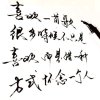 喜欢一首歌
很多时候不只是
喜欢 而是借种
方式 怀念一个人